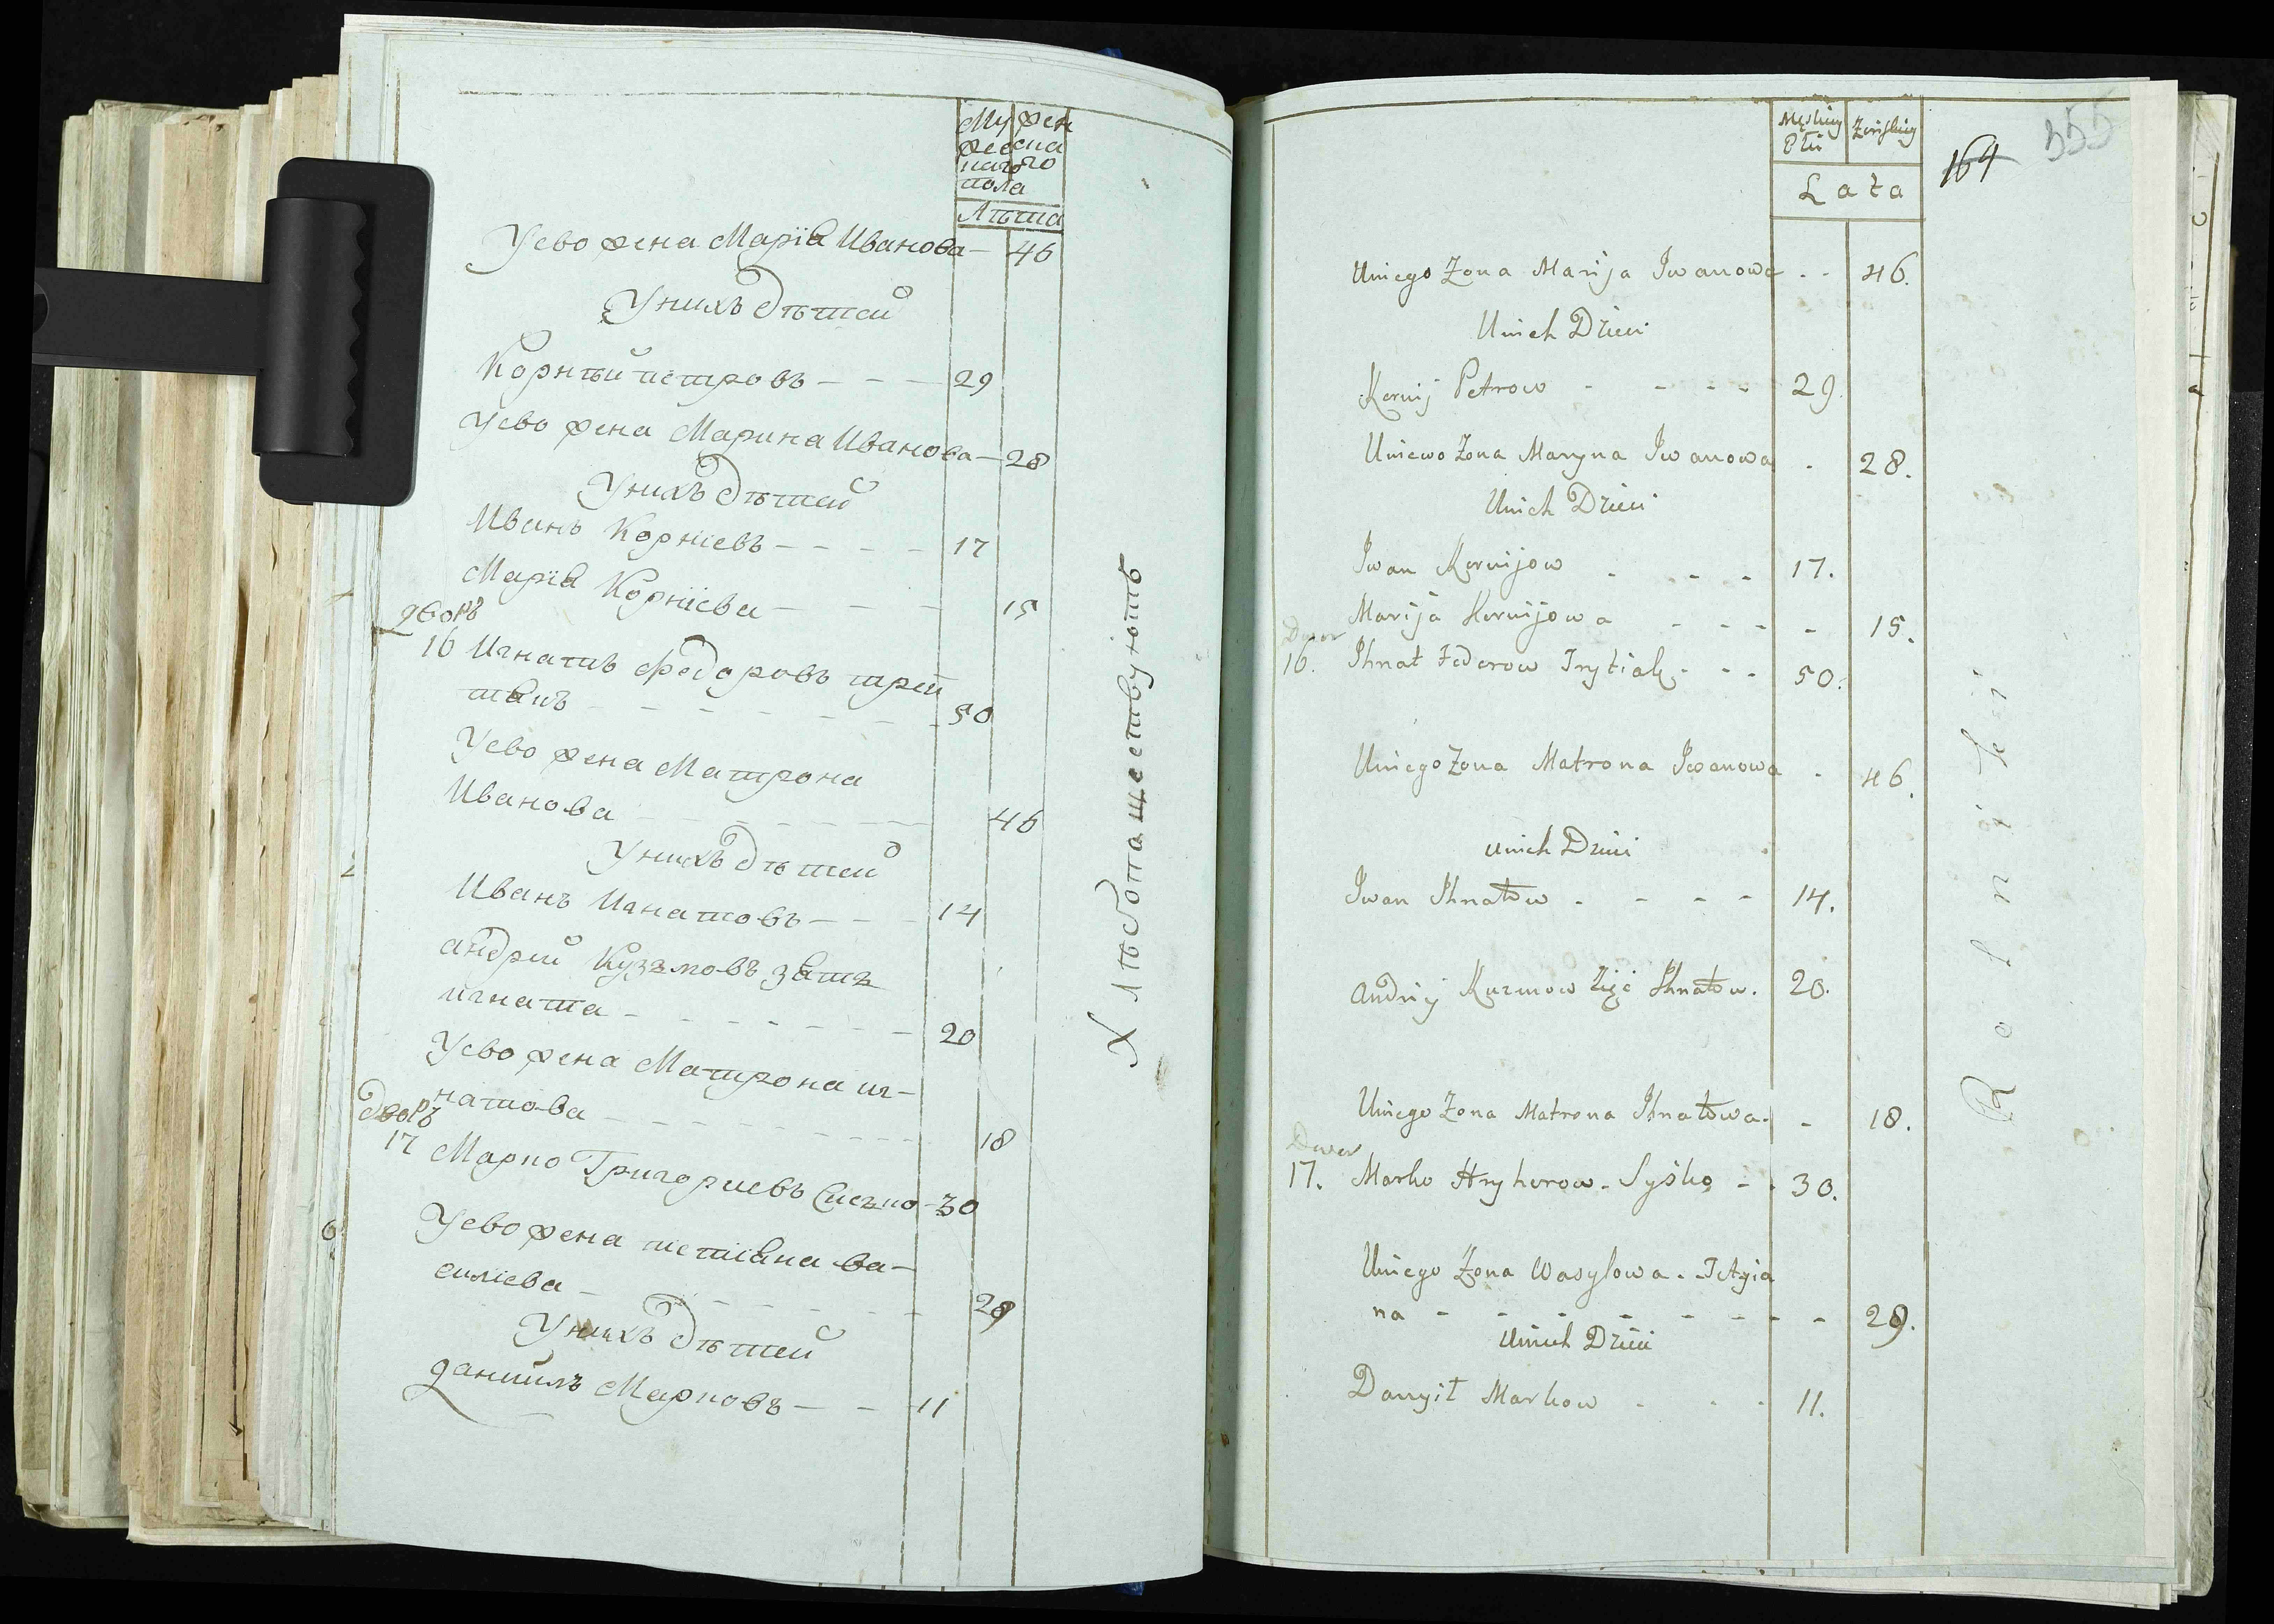 Му жен
жес ска
каго го
пола
Лѣта
У ево жена Марія Иванова — 46
У нихъ дѣтей
Корнѣй петровъ — — — 29
У ево жена Марина Иванова — 28
У нихъ дѣтей
Иванъ Корніевъ — — — — 17
Марія Корніева — — — 15
дворъ
16 Игнатъ Федоровъ трет
тякъ — — — — — — — 50
У ево жена Матрона
Иванова — — — — — — 46
У нихъ дѣтей
Иванъ Игнатовъ — — — 14
андрей Кузъмовъ зятъ
игната — — — — — — — 20
У ево жена Матрона иг-
натова — — — — — — — — 18
дворъ
17 Марко Григориевъ Сисъко - 30
У ево жена тетіяна ва-
силіева — — — — — — — 29
У нихъ дѣтей
даниилъ Марковъ — — — 11
Хлѣбопаществуютъ
Męskiey Żeńskiey
Płci
Lata
164 355
Uniego Zona Marija Iwanowa . - 46.
Unich Dzieci
Kornij Petrow - - - - 29.
Uniewo Zona Maryna Iwanowa . 28.
Unich Dzieci
Iwan Kornijow - - - - 17.
Marija Kornijowa - - - - 15.
Dwor
16. Ihnat Fedorow Trytiak - - - 50.
Uniego Zona Matrona Iwanowa . 46.
unich Dzieci
Iwan Ihnatow - - - - 14.
Andrij Kuzmow Zięć Ihnatow. 20.
Uniego Zona Matrona Ihnatowa. - 18.
Dwor
17. Marko Hryhorow. Syśko - . 30.
Uniego Zona Wasylowa. Tetyia
na - - - - - - - - 29.
Unich Dzieci
Danyił Markow - . . 11.
Rolniki